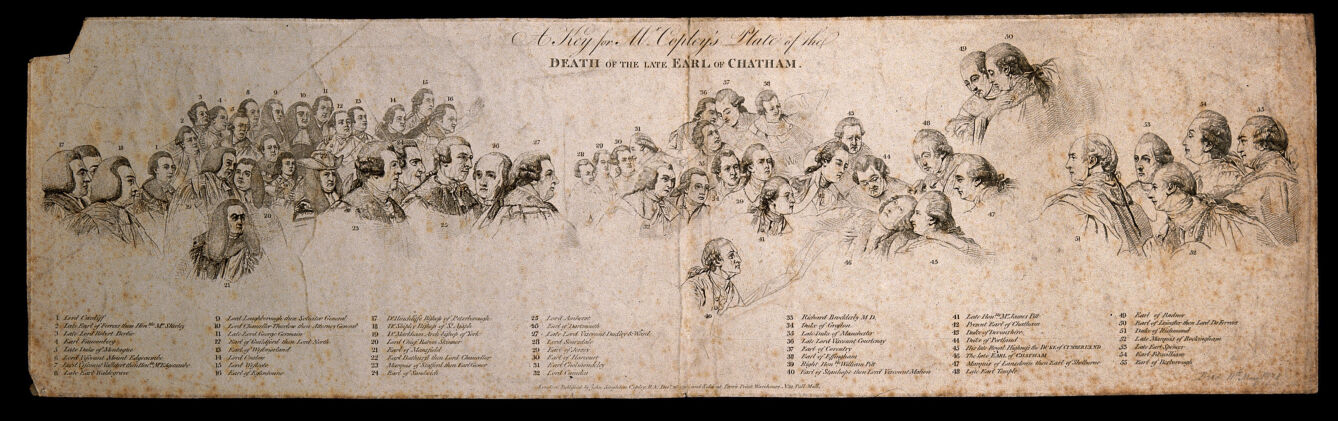 A Key for Mr. Copley's Plate of the
DEATH OF THE LATE EARL OF CHATHAM.
1 Lord Cardiff
2 Late Earl of Ferrers then Honble. Mr. Shirley
3 Late Lord Robert Bertie
4 Earl Fauconberg
5 Late Duke of Montague
6 Lord Viscount Mount Edgecumbe
8 Late Earl Waldegrave
9 Lord Loughborough then Solicitor General
10 Lord Chancellor Thurlow then Attorney General
11 Late Lord George Germain
12 Earl of Guildford then Lord North
13 Earl of Westmorland
14 Lord Onslow
15 Lord Wycote
16 Earl of Egleintoune
17 Dr. Hinchliffe Bishop of Peterborough
18 Dr. Shipley Bishop of St. Asaph
19 Dr. Markham Arch Bishop of York
20 Lord Chief Baron Skinner
21 Earl of Mansfield
22 Earl Bathurst then Lord Chancellor
23 Marquis of Stafford then Earl Gower
24 Earl of Sandwich
25 Lord Amherst
26 Earl of Dartmouth
27 Late Lord Viscount Dudley & Ward
28 Lord Scarsdale
29 Earl of
30 Earl of Harcourt
31 Earl Cholmondeley
32 Lord Camden
33 Richard Brocklesby M.D.
34 Duke of Grafton
35 Late Duke of Manchester
36 Late Lord Viscount Courtenay
37 Earl of Coventry
38 Earl of Effingham
39 Right Honble. William Pitt
40 Earl of Stanhope then Lord Viscount Mahon
41 Late Honble. Mr. James Pitt
42 Present Earl of Chatham
43 Duke of Devonshire
44 Duke of Portland
45 His late Royal Highness the DUKE OF CUMBERLAND
46 The late EARL OF CHATHAM
47 Marquis of Lansdown then Earl of Shelburne
48 Late Earl Temple
49 Earl of Radnor
50 Earl of Leicester then Lord De Ferrers
51 Duke of Richmond
52 Late Marquis of Rockingham
53 Late Earl Spencer
54 Earl Fitzwilliam
55 Earl of Besborough
London Published by John Singleton Copley R.A. & Sold at Print Warehouse Pall Mall